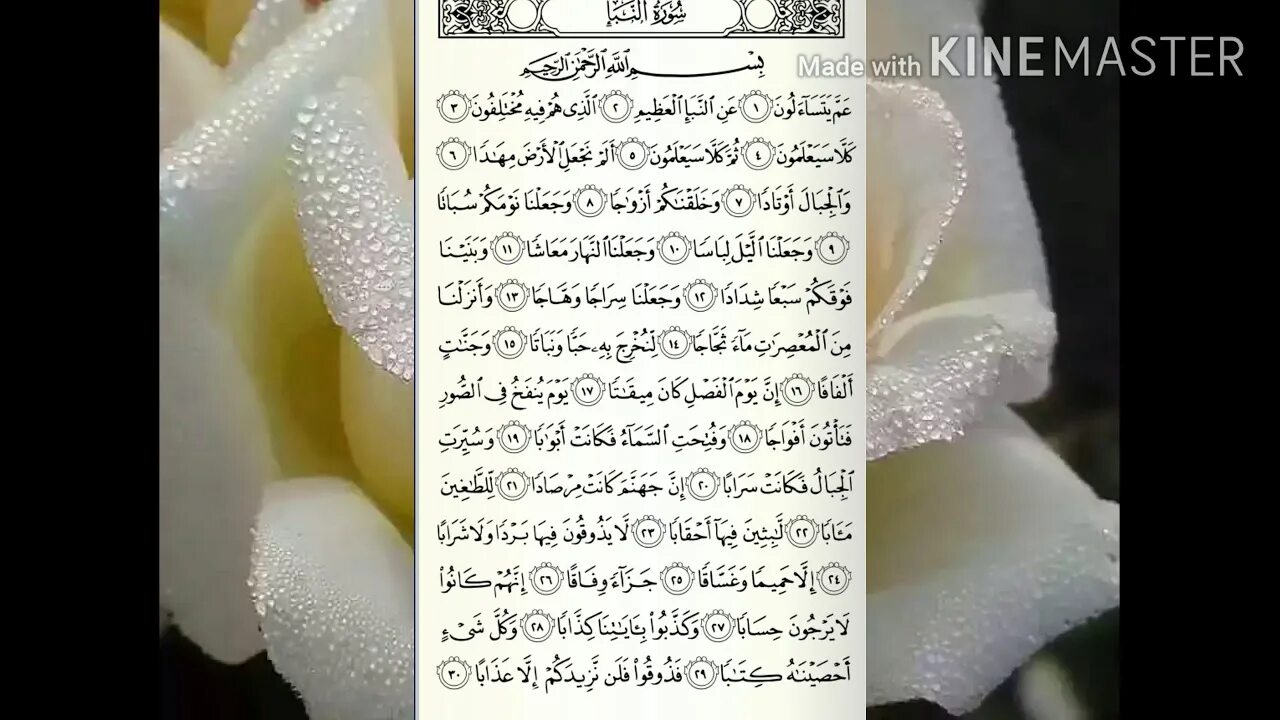 سُورَةُ النَّبَإِ
بِسْمِ اللَّهِ الرَّحْمَٰنِ الرَّحِيمِ
Made with KINEMASTER
عَمَّ يَتَسَآءَلُونَ ١ عَنِ النَّبَإِ الْعَظِيمِ ٢ الَّذِى هُمْ فِيهِ مُخْتَلِفُونَ ٣
كَلَّا سَيَعْلَمُونَ ٤ ثُمَّ كَلَّا سَيَعْلَمُونَ ٥ أَلَمْ نَجْعَلِ الْأَرْضَ مِهَٰدًا ٦
وَالْجِبَالَ أَوْتَادًا ٧ وَخَلَقْنَٰكُمْ أَزْوَٰجًا ٨ وَجَعَلْنَا نَوْمَكُمْ سُبَاتًا
٩ وَجَعَلْنَا الَّيْلَ لِبَاسًا ١٠ وَجَعَلْنَا النَّهَارَ مَعَاشًا ١١ وَبَنَيْنَا
فَوْقَكُمْ سَبْعًا شِدَادًا ١٢ وَجَعَلْنَا سِرَاجًا وَهَّاجًا ١٣ وَأَنزَلْنَا
مِنَ الْمُعْصِرَٰتِ مَآءً ثَجَّاجًا ١٤ لِّنُخْرِجَ بِهِۦ حَبًّا وَنَبَاتًا ١٥ وَجَنَّٰتٍ
أَلْفَافًا ١٦ إِنَّ يَوْمَ الْفَصْلِ كَانَ مِيقَٰتًا ١٧ يَوْمَ يُنفَخُ فِى الصُّورِ
فَتَأْتُونَ أَفْوَاجًا ١٨ وَفُتِحَتِ السَّمَآءُ فَكَانَتْ أَبْوَٰبًا ١٩ وَسُيِّرَتِ
الْجِبَالُ فَكَانَتْ سَرَابًا ٢٠ إِنَّ جَهَنَّمَ كَانَتْ مِرْصَادًا ٢١ لِّلطَّٰغِينَ
مَـَٔابًا ٢٢ لَّٰبِثِينَ فِيهَآ أَحْقَابًا ٢٣ لَّا يَذُوقُونَ فِيهَا بَرْدًا وَلَا شَرَابًا
٢٤ إِلَّا حَمِيمًا وَغَسَّاقًا ٢٥ جَزَآءً وِفَاقًا ٢٦ إِنَّهُمْ كَانُوا۟
لَا يَرْجُونَ حِسَابًا ٢٧ وَكَذَّبُوا۟ بِـَٔايَٰتِنَا كِذَّابًا ٢٨ وَكُلَّ شَىْءٍ
أَحْصَيْنَٰهُ كِتَٰبًا ٢٩ فَذُوقُوا۟ فَلَن نَّزِيدَكُمْ إِلَّا عَذَابًا ٣٠